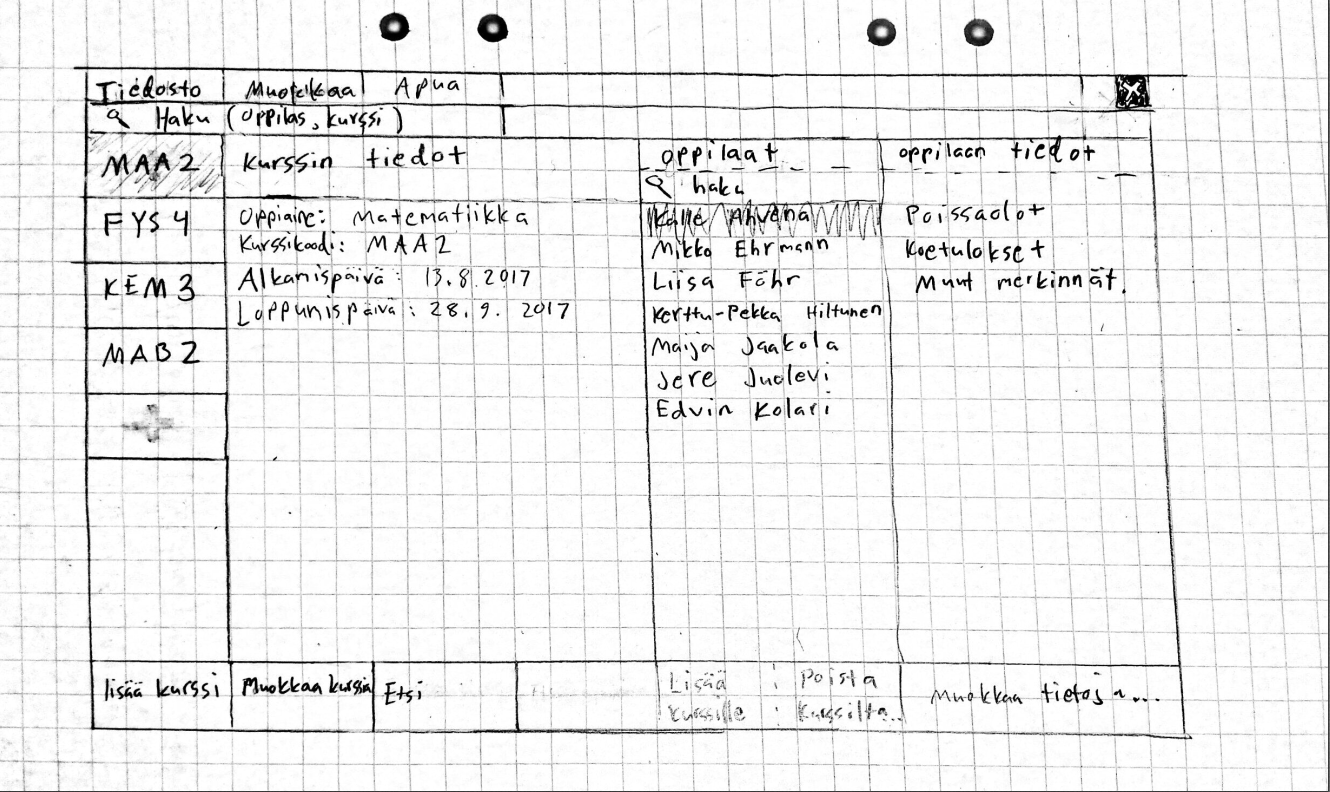 Tiedosto Muokkaa Apua
Haku (oppilas, kurssi)
MAA2
FYS4
KEM3
MAB2
+
Kurssin tiedot
Oppiaine: Matematiikka
Kurssikoodi: MAA2
Alkamispäivä: 13.8.2017
Loppumispäivä: 28.9.2017
oppilaat
haku
Kalle Ahvena
Mikko Ehrmann
Liisa Föhr
Kerttu-Pekka Hiltunen
Maija Jaakola
Jere Juolevi
Edvin Kolari
oppilaan tiedot
Poissaolot
Koetulokset
Muut merkinnät.
lisää kurssi
Muokkaa kurssia
Etsi
Lisää
kurssille
Poista
kurssilta..
Muokkaa tietoja...